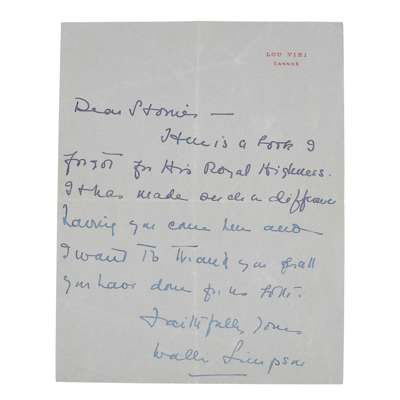 LOU VIEI
Cannes
Dear Storrier —
Here is a book I
forgot for His Royal Highness.
It has made such a difference
having you come here and
I want to thank you for all
you have done for us both.
Faithfully yours
Wallis Simpson